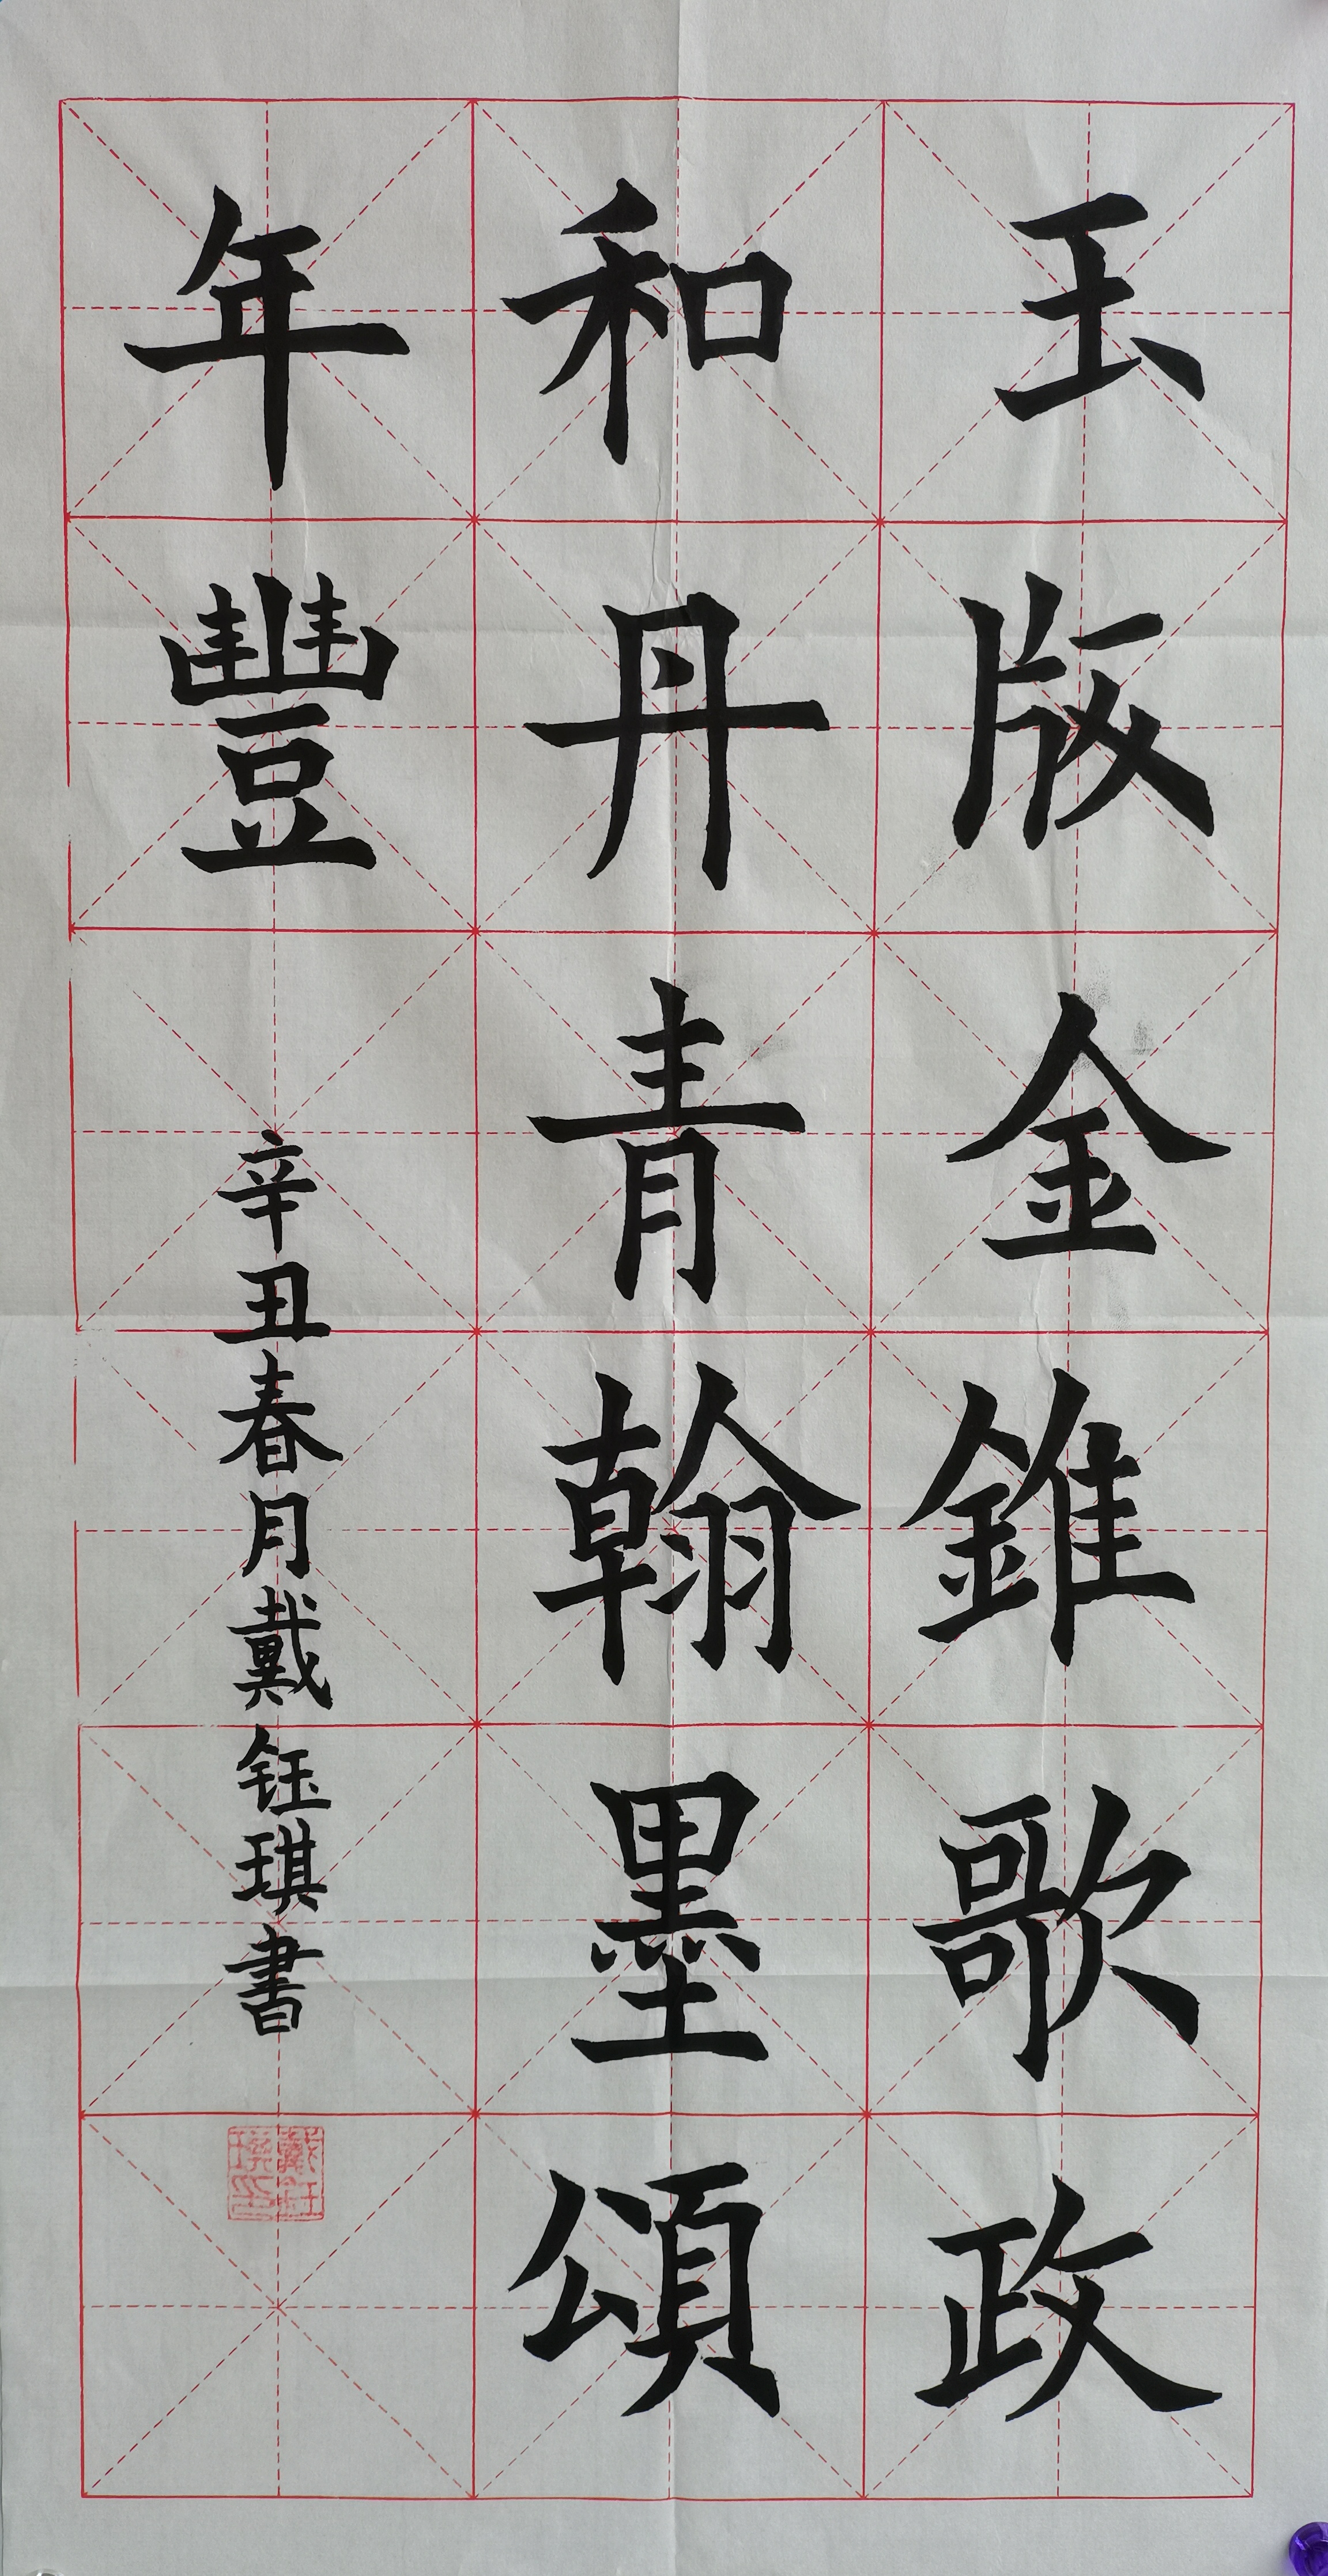 玉版金錐歌政
和丹青翰墨頌
年豐
辛丑春月戴钰琪書
戴钰琪印